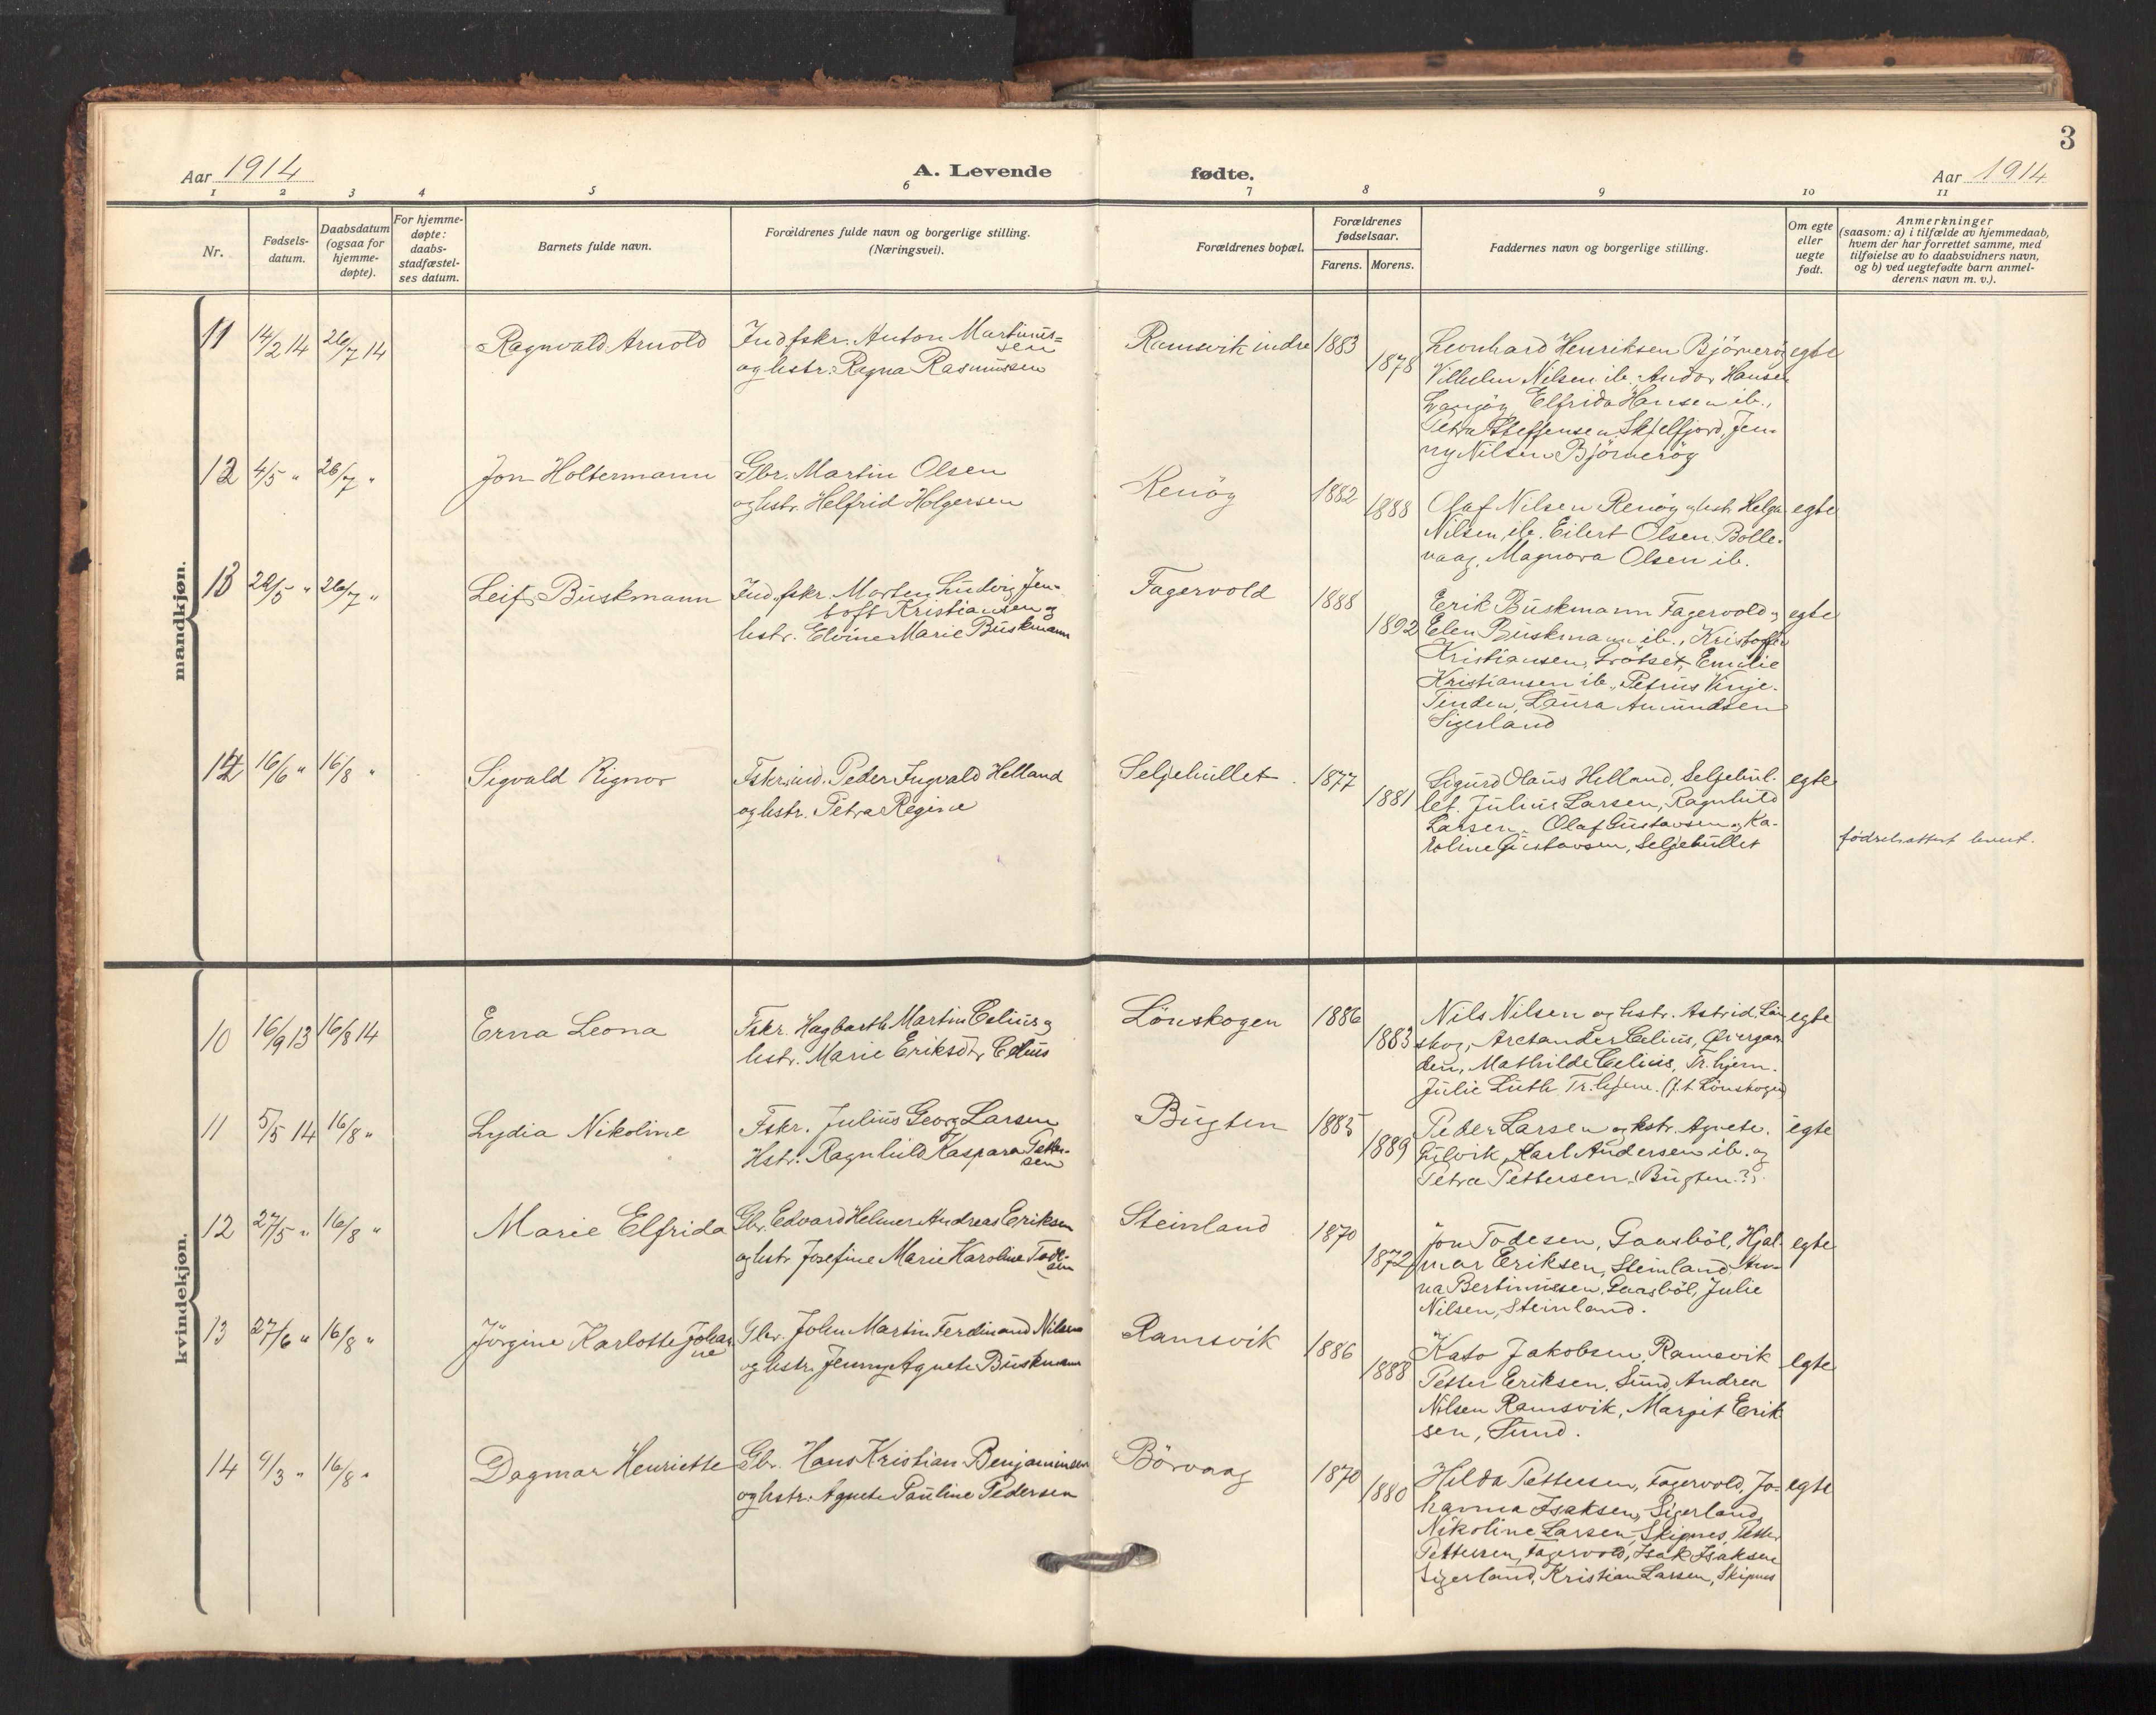 3
Aar 1914
A. Levende fødte.
Aar 1914
1 2 3 4 5 6 7 8 9 10 11
Nr.
Fødsels-
datum.
Daabsdatum
(ogsaa for
hjemme-
døpte).
For hjemme-
døpte:
daabs-
stadfæstel-
ses datum.
Barnets fulde navn.
Forældrenes fulde navn og borgerlige stilling.
(Næringsvei).
Forældrenes bopæl.
Forældrenes
fødselsaar.
Farens. Morens.
Faddernes navn og borgerlige stilling.
Om egte
eller
uegte
født.
Anmerkninger
(saasom: a) i tilfælde av hjemmedaab,
hvem der har forrettet samme, med
tilføielse av to daabsvidners navn,
og b) ved uegtefødte barn anmel-
derens navn m. v.).
mandkjøn.
11 14/2 14 26/7 14
Ragnvald Arnold
Indfskr. Anton Martinus-
sen
og hstr. Ragna Rasmussen
Ramsvik indre 1883
1878
Leonhard Henriksen Björnerög egte
Vilhelm Nilsen ib. Andor Hansen
Elfrida Hansen ib.,
Petra Steffensen Skjelfjord, Jen-
ny Nilsen Björnerög
12 4/5 " 26/7 "
Jon Holtermann
Gbr. Martin Olsen
og hstr. Helfrid Holgersen
Renög 1882
1888
Olaf Nilsen Renög og hstr Helga egte
Nilsen, ib. Eilert Olsen Bolle-
vaag, Magnora Olsen ib.
13 22/5 " 26/7 "
Leif Buskmann
Ind.fskr. Morten Ludvig Jen-
toft Kristiansen og
hstr. Elvine Marie Buskmann
Fagervold 1888
1892
Erik Buskmann Fagervold og egte
Elen Buskmann ib., Kristoffer
Kristiansen, Grötset, Emilie
Kristiansen ib., Petrus Vinje-
Tinden, Laura Amundsen
Sigerland
14 16/6 " 16/8 "
Sigvald Rignor
Fskr.ind. Peder Ingvald Helland
og hstr. Petra Regine
Seljehullet 1877
1881
Sigurd Olaus Helland, Seljehul- egte
let. Julius Larsen, Ragnhild
Larsen, Olaf Gustavsen og Ka-
roline Gustavsen, Seljehullet
levert.
kvindekjøn.
10 16/9 13 16/8 14
Erna Leona
Fskr. Hagbarth Martin Celius og
hstr. Marie Eriksdtr Celius
Lönskogen 1886
1883
Nils Nilsen og hstr. Astrid, Lön- egte
skog, Aretander Celius, Övergaar-
den, Mathilde Celius, Tr.hjem.
Julie Luth Tr.hjem. (f.t. Lönskogen)
11 5/5 14 16/8 "
Lydia Nikoline
Fskr. Julius Georg Larsen
Hstr. Ragnhild Kaspara Petter-
sen
Bugten 1885
1889
Peder Larsen og hstr. Agnete. egte
Gulvik, Karl Andersen ib. og
Petra Pettersen, (Bugten?).
12 27/5 " 16/8 "
Marie Elfrida
Gbr. Edvard Helmer Andreas Eriksen
og hstr Josefine Marie Karoline
Steinland 1870
1872
Jon Todesen, Gaasböl, Hjal- egte
mar Eriksen, Steinland. An-
na Bertinussen, Gaasböl, Julie
Nilsen, Steinland.
13 27/6 " 16/8 "
Jörgine Karlotte Johan-
ne
Gbr. John Martin Ferdinand Nilsen
og hstr. Jenny Agnete Buskmann
Ramsvik 1886
1888
Kato Jakobsen, Ramsvik egte
Petter Eriksen, Sund, Andrea
Nilsen Ramsvik, Margit Erik-
sen, Sund.
14 9/3 " 16/8 "
Dagmar Henriette
Gbr. Hans Kristian Benjaminsen
og hstr. Agnete Pauline Pedersen
Börvaag 1870
1880
Hilda Pettersen, Fagervold, Jo- egte
hanna Isaksen, Sigerland,
Nikoline Larsen, Skipnes, Petter
Pettersen, Fagervold, Isak Isaksen
Sigerland, Kristian Larsen, Skipnes